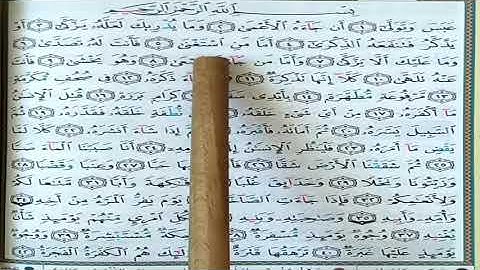 بِسْمِ ٱللَّهِ ٱلرَّحْمَٰنِ ٱلرَّحِيمِ
عَبَسَ وَتَوَلَّىٰٓ ١ أَن جَآءَهُ ٱلْأَعْمَىٰ ٢ وَمَا يُدْرِيكَ لَعَلَّهُۥ يَزَّكَّىٰٓ ٣ أَوْ
يَذَّكَّرُ فَتَنفَعَهُ ٱلذِّكْرَىٰٓ ٤ أَمَّا مَنِ ٱسْتَغْنَىٰ ٥ فَأَنتَ لَهُۥ تَصَدَّىٰ ٦
وَمَا عَلَيْكَ أَلَّا يَزَّكَّىٰ ٧ وَأَمَّا مَن ٨ وَهُوَ يَخْشَىٰ ٩ فَأَنتَ
عَنْهُ تَلَهَّىٰ ١٠ كَلَّآ إِنَّهَا تَذْكِرَةٌ ١١ ذَكَرَهُۥ ١٢ فِى صُحُفٍ مُّكَرَّمَةٍ
١٣ مَّرْفُوعَةٍ مُّطَهَّرَةٍۭ ١٤ بِأَيْدِى ١٥ كِرَامٍۭ بَرَرَةٍ ١٦ قُتِلَ ٱلْإِنسَٰنُ
مَآ أَكْفَرَهُۥ ١٧ مِنْ أَىِّ شَىْءٍ خَلَقَهُۥ ١٨ نُّطْفَةٍ خَلَقَهُۥ فَقَدَّرَهُۥ ١٩ ثُمَّ
ٱلسَّبِيلَ يَسَّرَهُۥ ٢٠ ثُمَّ أَمَاتَهُۥ فَأَقْبَرَهُۥ ٢١ إِذَا شَآءَ أَنشَرَهُۥ ٢٢ كَلَّا لَمَّا
يَقْضِ مَآ أَمَرَهُۥ ٢٣ فَلْيَنظُرِ ٱلْإِنسَٰنُ إِلَىٰ ٢٤ أَنَّا صَبَبْنَا ٱلْمَآءَ صَبًّا
٢٥ ثُمَّ شَقَقْنَا ٱلْأَرْضَ شَقًّا ٢٦ حَبًّا ٢٧ وَعِنَبًا وَقَضْبًا ٢٨
وَزَيْتُونًا وَنَخْلًا ٢٩ وَحَدَآئِقَ غُلْبًا ٣٠ وَفَٰكِهَةً وَأَبًّا ٣١ مَّتَٰعًا لَّكُمْ
وَلِأَنْعَٰمِكُمْ ٣٢ فَإِذَا جَآءَتِ يَوْمَ يَفِرُّ ٱلْمَرْءُ مِنْ أَخِيهِ ٣٤
وَأُمِّهِۦ وَأَبِيهِ ٣٥ وَصَٰحِبَتِهِۦ وَبَنِيهِ لِكُلِّ ٱمْرِئٍ مِّنْهُمْ يَوْمَئِذٍ شَأْنٌ
يُغْنِيهِ ٣٧ وُجُوهٌ يَوْمَئِذٍ ضَاحِكَةٌ مُّسْتَبْشِرَةٌ ٣٩ وَوُجُوهٌ
يَوْمَئِذٍ عَلَيْهَا غَبَرَةٌ ٤٠ تَرْهَقُهَا قَتَرَةٌ أُو۟لَٰٓئِكَ هُمُ ٱلْكَفَرَةُ ٱلْفَجَرَةُ ٤٢